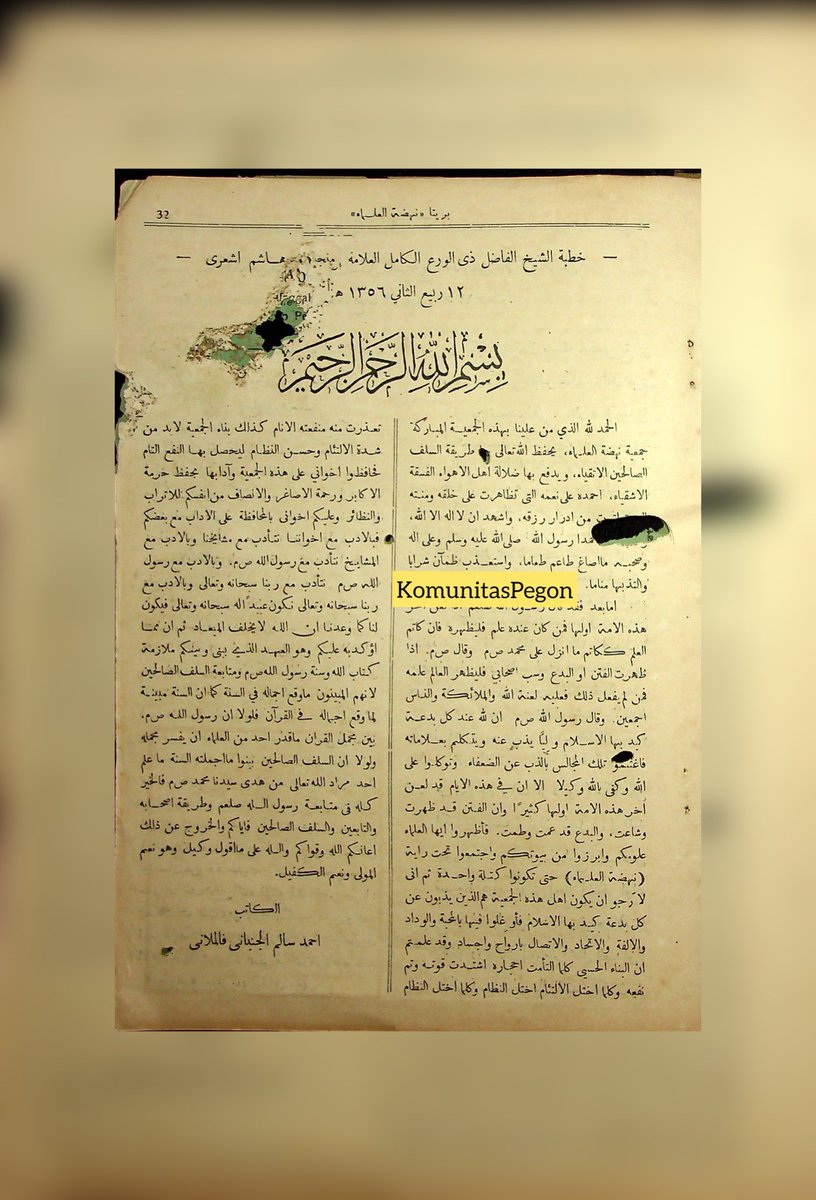 بريتا «نهضة العلماء»
32
— خطبة الشيخ الفاضل ذى الورع الكامل العلامة هاشم اشعرى —
١٢ ربيع الثاني ١٣٥٦ هـ
بِسْمِ اللهِ الرَّحْمٰنِ الرَّحِيْمِ
الحمد لله الذي من علينا بهذه الجمعية المباركة
جمعية نهضة العلماء، يحفظ الله تعالى طريقة السلف
الصالحين الاتقياء، ويدفع بها ضلالة اهل الاهواء الفسقة
الاشقياء، احمده على نعمه التى تظاهرت على خلقه ومنته
من ادرار رزقه، واشهد ان لا اله الا الله،
رسول الله صلى الله عليه وسلم وعلى اله
وصحبه مااصاغ طاعم طعاما، واستعذب ظمآن شرابا
والتذبها مناما.
KomunitasPegon
امابعد
هذه الامة اولها فمن كان عنده علم فليظهره فان كاتم
العلم ككاتم ما انزل على محمد ص م وقال ص م. اذا
ظهرت الفتن او البدع وسب اصحابي فليظهر العالم علمه
فمن لم يفعل ذلك فعليه لعنة الله والملائكة والناس
اجمعين. وقال رسول الله ص م ان لله عند كل بدعة
كيد بها الاسلام وليًّا يذب عنه ويتكلم بعلاماته
فاغتنموا تلك المجالس بالذب عن الضعفاء وتوكلوا على
الله وكفى بالله وكيلا الا ان في هذه الايام قد لعن
آخر هذه الامة اولها كثيرًا وان الفتن قد ظهرت
وشاعت، والبدع قد عمت وطمت. فأظهروا ايها العلماء
علومكم وابرزوا من بيوتكم واجتمعوا تحت راية
(نهضة العلماء) حتى تكونوا كتلة واحدة ثم انى
لا رجو ان يكون اهل هذه الجمعية هم الذين يذبون عن
كل بدعة كيد بها الاسلام فأوغلوا فيها بالمحبة والوداد
والالفة والاتحاد والاتصال بارواح واجساد وقد علمتم
ان البناء الحسي كلما التأمت احجاره اشتدت قوته وتم
نفعه وكلما اختل الالتئام اختل النظام وكلما اختل النظام
تعذرت منه منفعته الانام كذلك بناء الجمعية لابد من
شدة الالتئام وحسن النظام ليحصل بها النفع التام
فحافظوا اخوانى على هذه الجمعية وآدابها بحفظ حرمة
الاكابر ورحمة الاصاغر والانصاف من انفسكم للاتراب
والنظائر وعليكم اخوانى بالمحافظة على الاداب مع بعضكم
فبالادب مع اخواننا نتأدب مع مشايخنا وبالادب مع
المشايخ نتأدب مع رسول الله ص م، وبالادب مع رسول
الله ص م نتأدب مع ربنا سبحانه وتعالى وبالادب مع
ربنا سبحانه وتعالى نكون عبيدًا له سبحانه وتعالى فيكون
لنا كما وعدنا ان الله لا يخلف الميعاد ثم ان مما
اؤكد به عليكم وهو العهد الذي بينى وبينكم ملازمة
كتاب الله وسنة رسول الله ص م ومتابعة السلف الصالحين
لانهم المبينون ماوقع اجماله في السنة كما ان السنة مبينة
لما وقع اجماله في القرآن فلولا ان رسول الله ص م،
بين مجمل القران ماقدر احد من العلماء ان يفسر مجمله
ولولا ان السلف الصالحين بينوا مااجملته السنة ما علم
احد مراد الله تعالى من هدى سيدنا محمد ص م فالخير
كله فى متابعة رسول الله صلعم وطريقة اصحابه
والتابعين والسلف الصالحين فاياكم والخروج عن ذالك
اعانكم الله وقواكم والله على مااقول وكيل وهو نعم
المولى ونعم الكفيل.
الكاتب
احمد سالم الجنبانى فالملانى